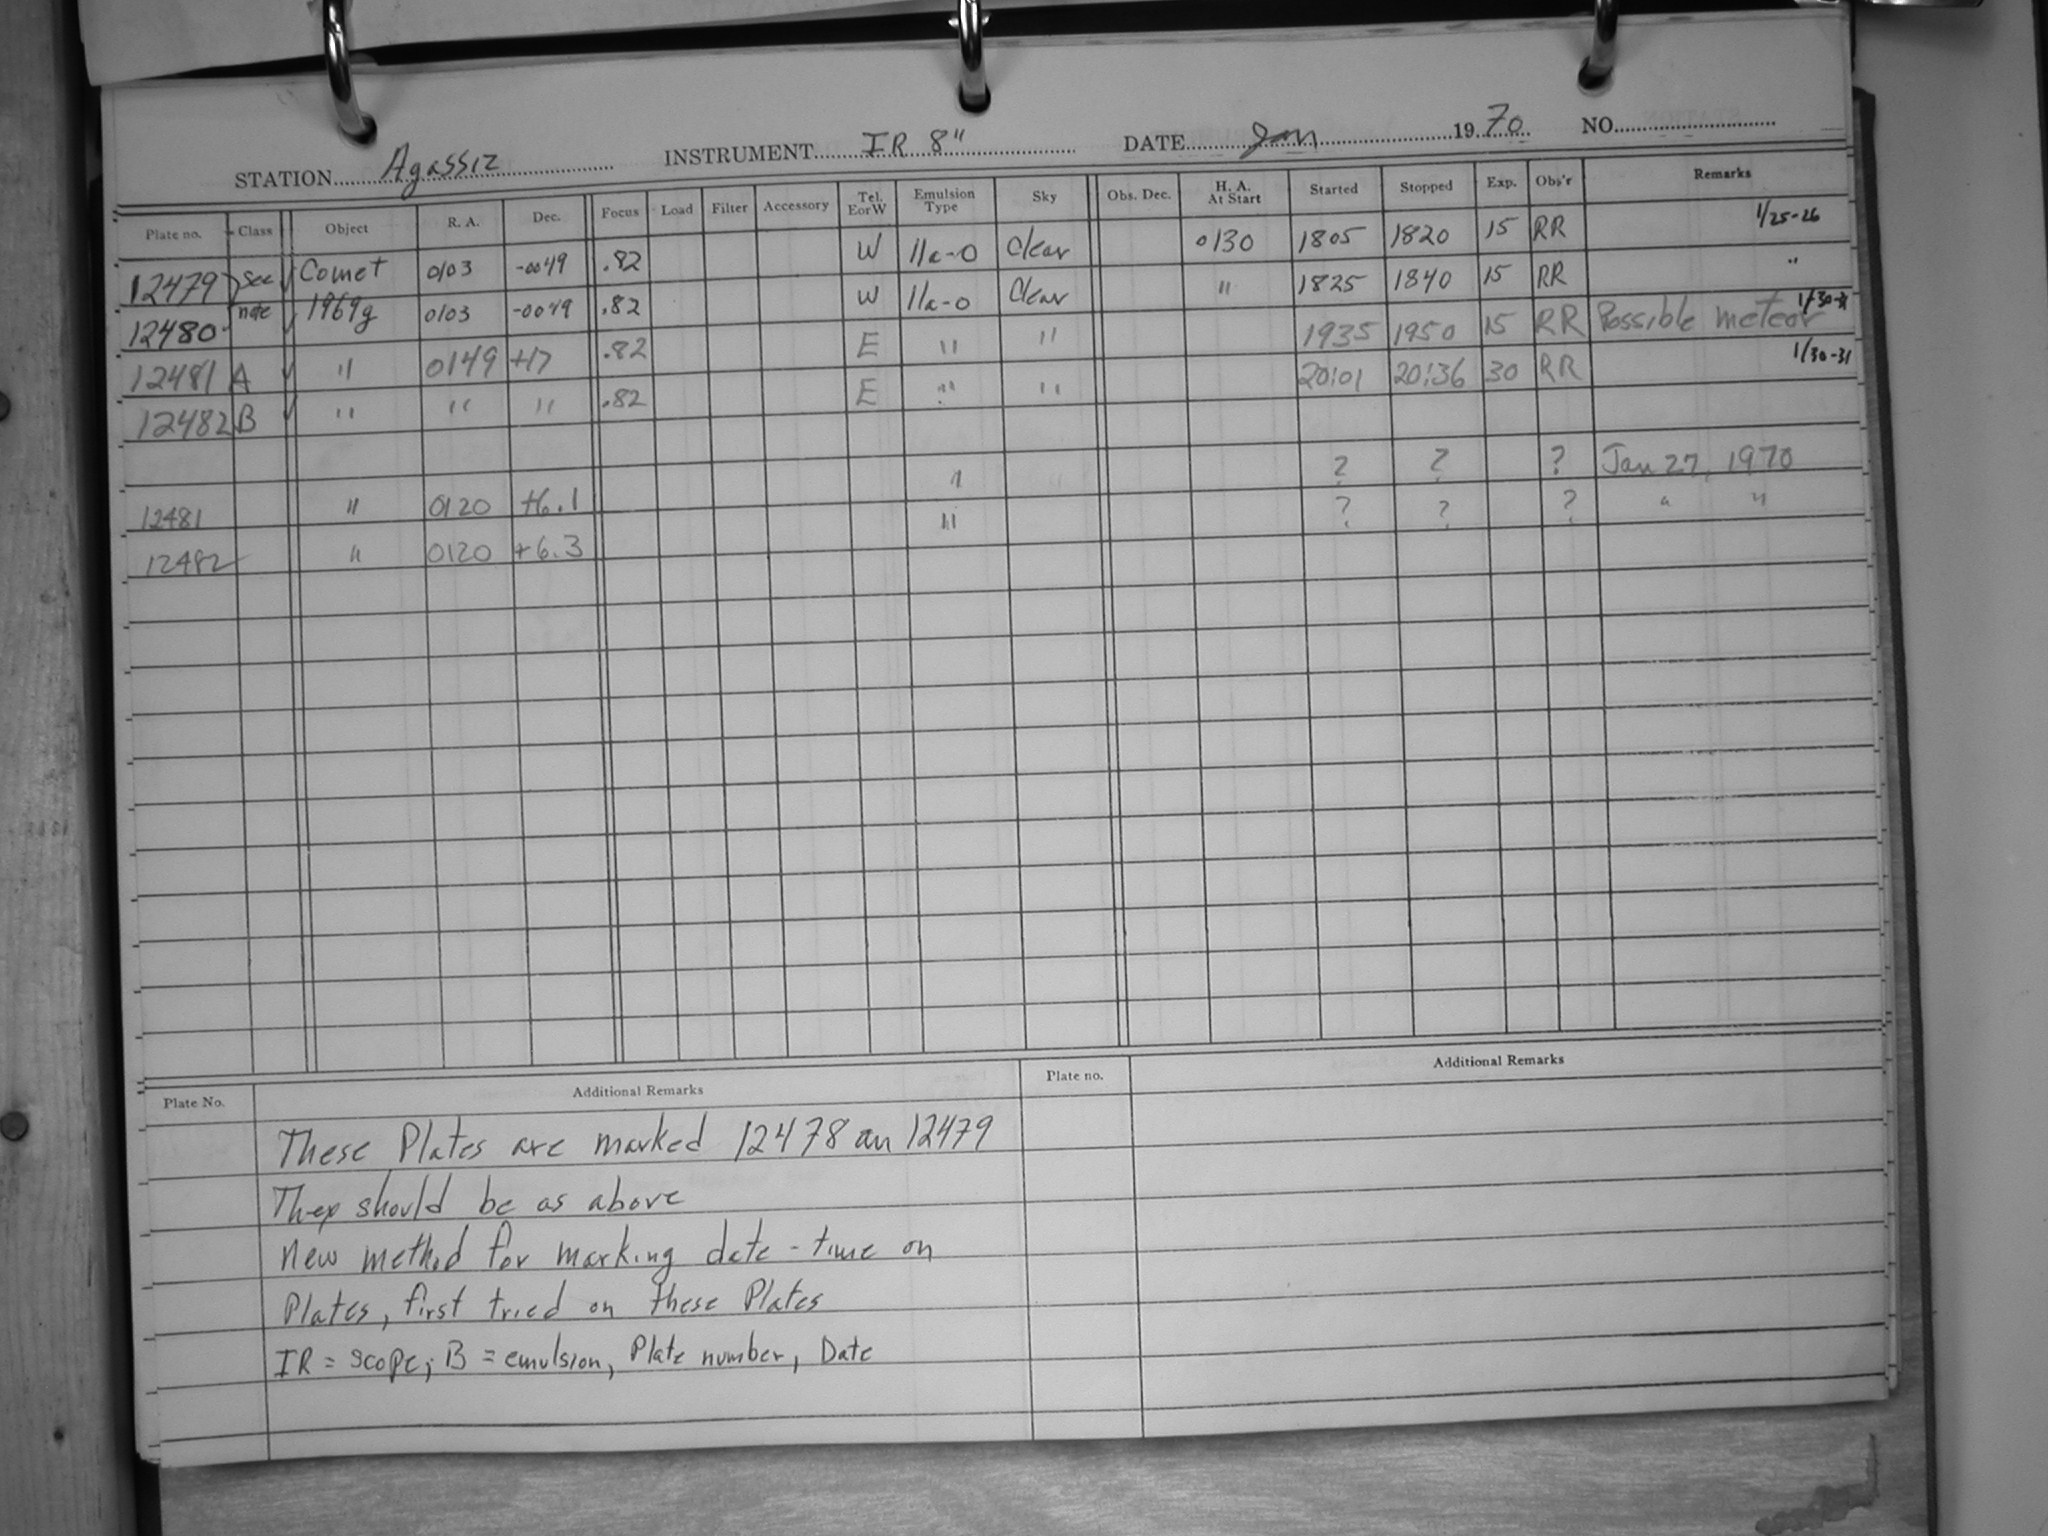 STATION Agassiz INSTRUMENT IR 8" DATE Jan 1970 NO.
Plate no. Class Object R. A. Dec. Focus Load Filter Accessory Tel. E or W Emulsion Type Sky Obs. Dec. H. A. At Start Started Stopped Exp. Obs'r Remarks
12479 } see ✓ Comet 0103 -0049 .82 W IIa-O Clear 0130 1805 1820 15 RR 1/25-26
12480 note ✓ 1969g 0103 -0049 .82 W IIa-O Clear " 1825 1840 15 RR "
12481 A ✓ " 0149 +17 .82 E " " 1935 1950 15 RR Possible meteor 1/30-31
12482 B ✓ " " " .82 E " " 20:01 20:36 30 RR 1/30-31
12481 " 0120 +6.1 " ? ? ? Jan 27, 1970
12482 " 0120 +6.3 " ? ? ? " "
Plate No. Additional Remarks Plate no. Additional Remarks
These Plates are marked 12478 an 12479
They should be as above
New method for marking date - time on
Plates, first tried on these Plates
IR = scope; B = emulsion, Plate number, Date